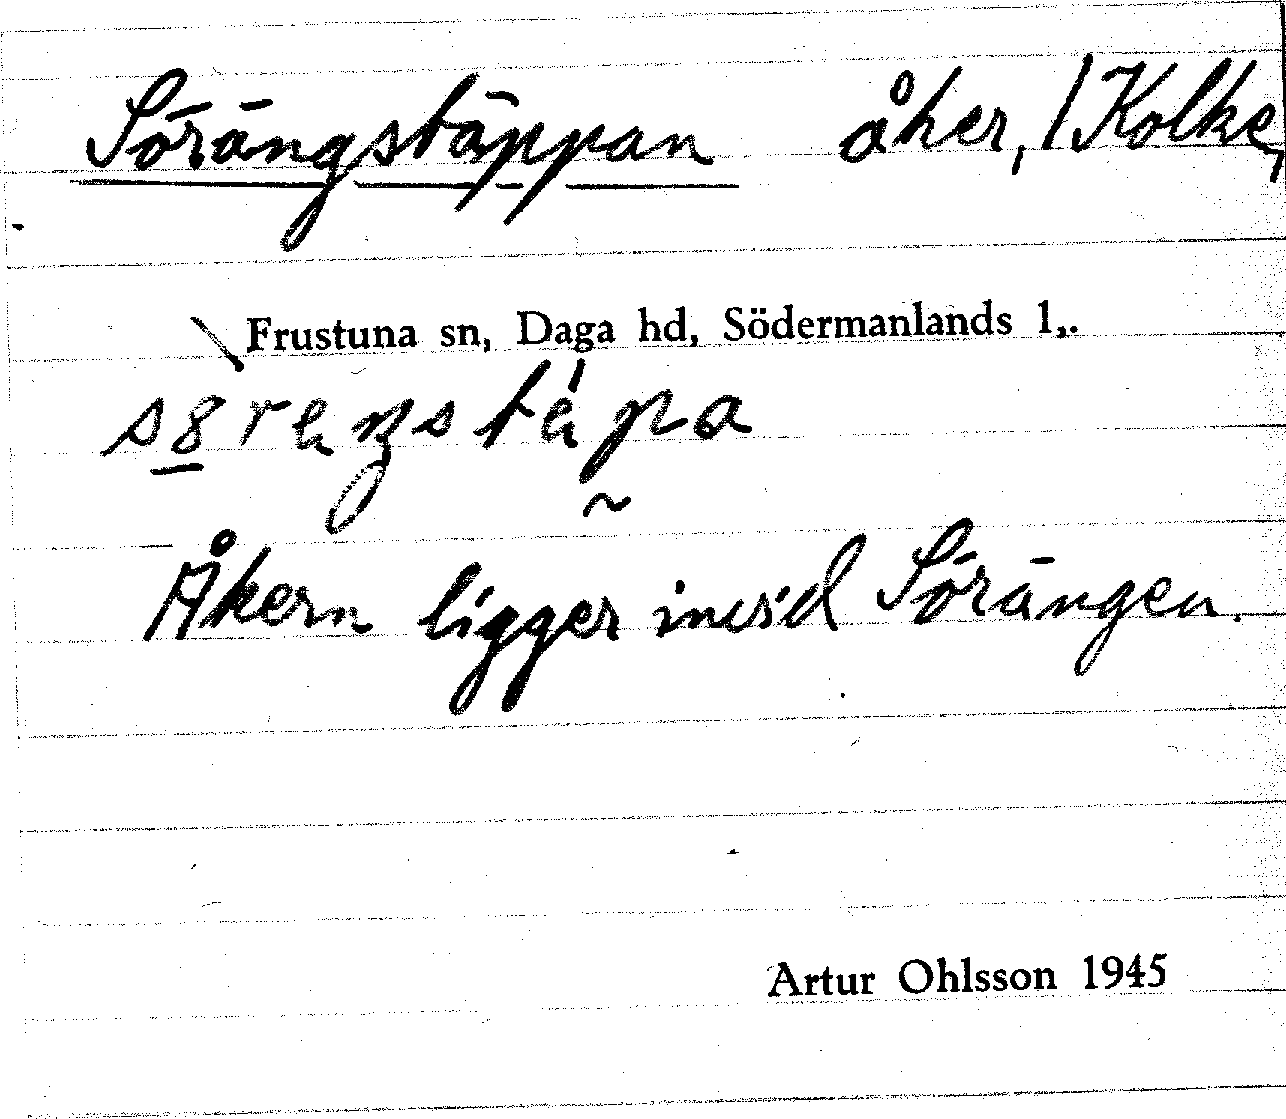 Sörängstäppan åker, / Kolke,
Frustuna sn, Daga hd, Södermanlands l,.
Åkern ligger invid Sörängen.
Artur Ohlsson 1945